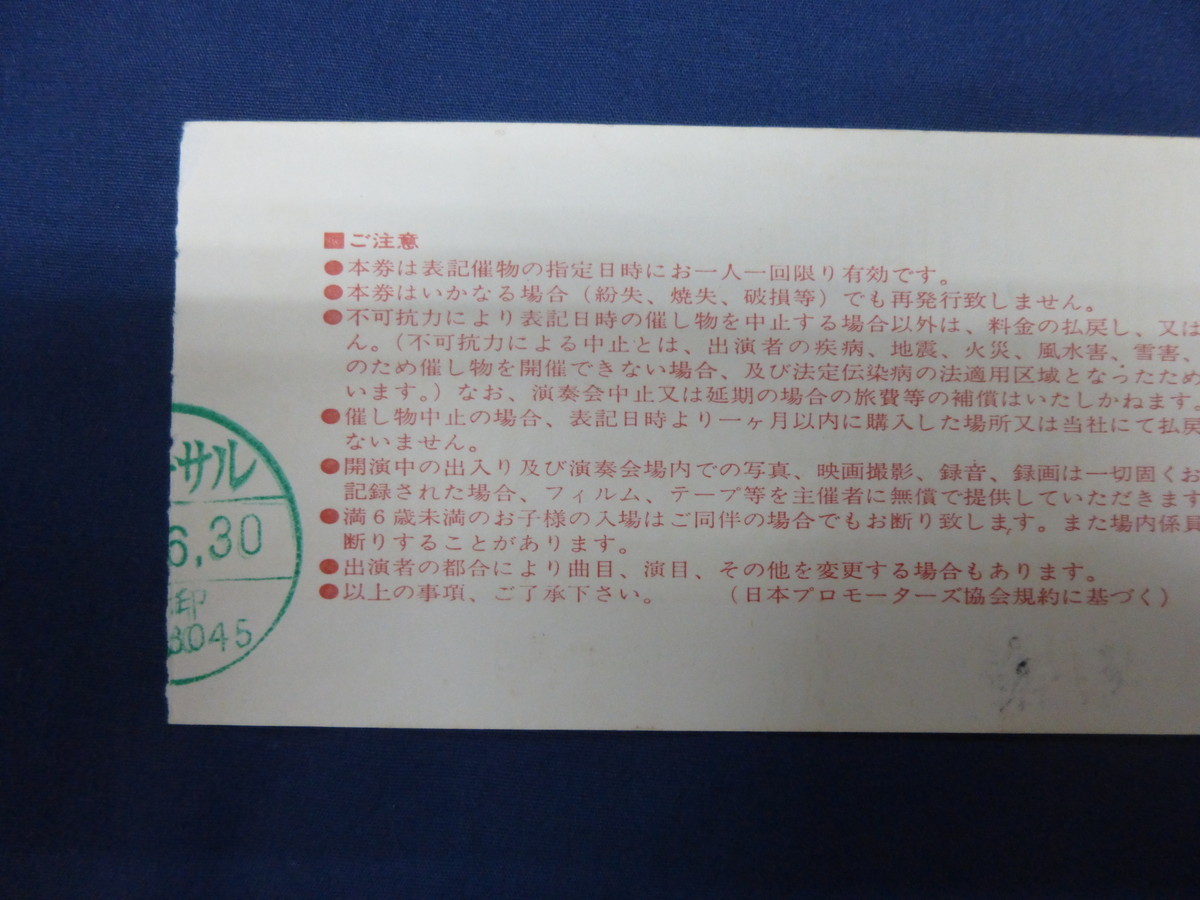 ■ご注意
●本券は表記催物の指定日時にお一人一回限り有効です。
●本券はいかなる場合（紛失、焼失、破損等）でも再発行致しません。
●不可抗力により表記日時の催し物を中止する場合以外は、料金の払戻し、又は
ん。（不可抗力による中止とは、出演者の疾病、地震、火災、風水害、雪害、
のため催し物を開催できない場合、及び法定伝染病の法適用区域となったため
います。）なお、演奏会中止又は延期の場合の旅費等の補償はいたしかねます。
●催し物中止の場合、表記日時より一ヶ月以内に購入した場所又は当社にて払戻
ないません。
●開演中の出入り及び演奏会場内での写真、映画撮影、録音、録画は一切固くお
記録された場合、フィルム、テープ等を主催者に無償で提供していただきます
●満６歳未満のお子様の入場はご同伴の場合でもお断り致します。また場内係員
断りすることがあります。
●出演者の都合により曲目、演目、その他を変更する場合もあります。
●以上の事項、ご了承下さい。 （日本プロモーターズ協会規約に基づく）
サル
6,30
印
8045